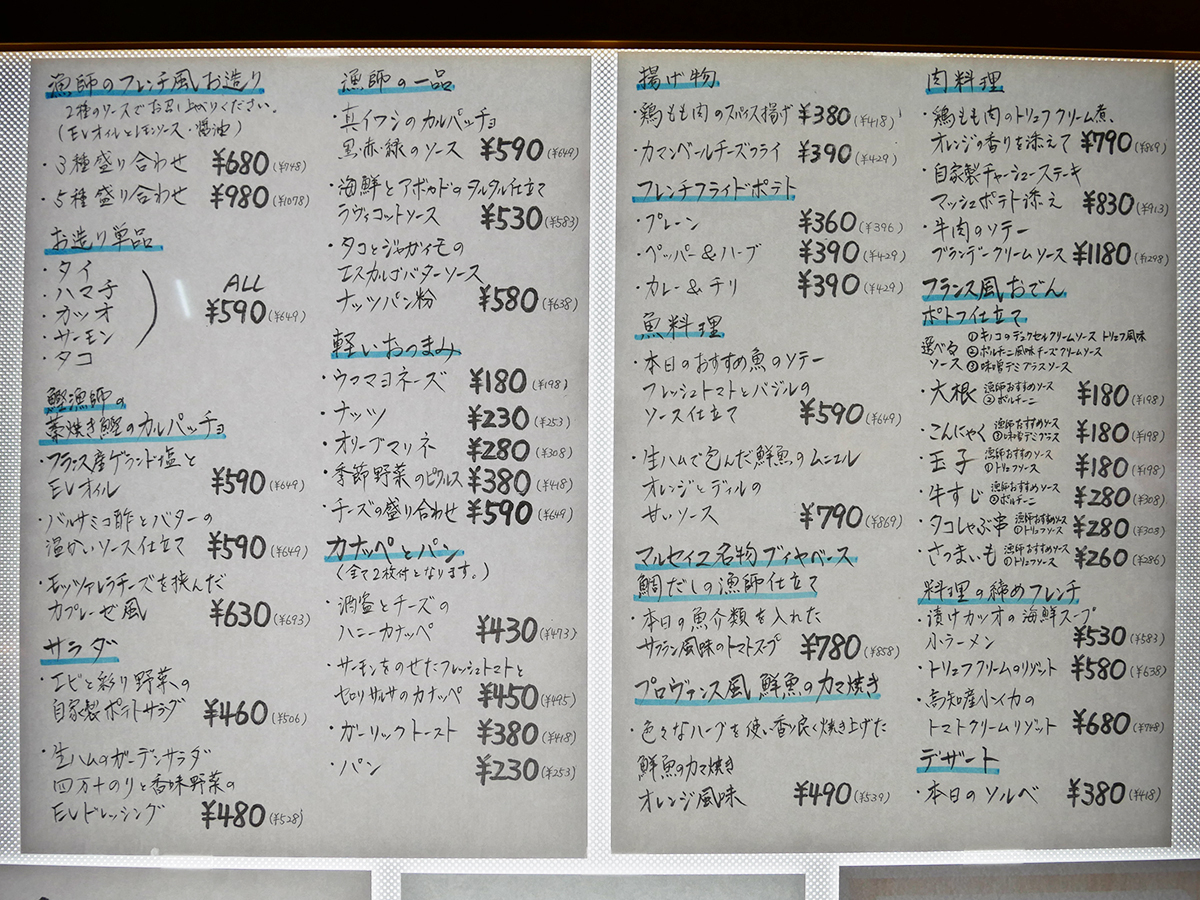 漁師のフレンチ風お造り
2種のソースでお召し上がりください。
(EVオイルとレモンソース・醤油)
・3種盛り合わせ ¥680(¥748)
・5種盛り合わせ ¥980(¥1078)
お造り単品
・タイ
・ハマチ
・カツオ
・サーモン
・タコ
ALL
¥590(¥649)
鰹漁師の
藁焼き鰹のカルパッチョ
・フランス産ゲランド塩と
EVオイル ¥590(¥649)
・バルサミコ酢とバターの
温かいソース仕立て ¥590(¥649)
・モッツァレラチーズを挟んだ
カプレーゼ風 ¥630(¥693)
サラダ
・エビと彩り野菜の
自家製ポテトサラダ ¥460(¥506)
・生ハムのガーデンサラダ
四万十のりと香味野菜の
EVドレッシング ¥480(¥528)
漁師の一品
・真イワシのカルパッチョ
黒・赤・緑のソース ¥590(¥649)
・海鮮とアボカドのタルタル仕立て
ラヴィゴットソース ¥530(¥583)
・タコとジャガイモの
エスカルゴバターソース
ナッツパン粉 ¥580(¥638)
軽いおつまみ
・ウフマヨネーズ ¥180(¥198)
・ナッツ ¥230(¥253)
・オリーブマリネ ¥280(¥308)
・季節野菜のピクルス ¥380(¥418)
・チーズの盛り合わせ ¥590(¥649)
カナッペとパン
(全て2枚付となります。)
・酒盗とチーズの
ハニーカナッペ ¥430(¥473)
・サーモンをのせたフレッシュトマトと
セロリサルサのカナッペ ¥450(¥495)
・ガーリックトースト ¥380(¥418)
・パン ¥230(¥253)
揚げ物
・鶏もも肉のスパイス揚げ ¥380(¥418)
・カマンベールチーズフライ ¥390(¥429)
フレンチフライドポテト
・プレーン ¥360(¥396)
・ペッパー&ハーブ ¥390(¥429)
・カレー&チリ ¥390(¥429)
魚料理
・本日のおすすめ魚のソテー
フレッシュトマトとバジルの
ソース仕立て ¥590(¥649)
・生ハムで包んだ鮮魚のムニエル
オレンジとディルの
甘いソース ¥790(¥869)
マルセイユ名物ブイヤベース
鯛だしの漁師仕立て
・本日の魚介類を入れた
サフラン風味のトマトスープ ¥780(¥858)
プロヴァンス風 鮮魚のカマ焼き
・色々なハーブを使い香り良く焼き上げた
鮮魚のカマ焼き
オレンジ風味 ¥490(¥539)
肉料理
・鶏もも肉のトリュフクリーム煮、
オレンジの香りを添えて ¥790(¥869)
・自家製チャーシューステーキ
マッシュポテト添え ¥830(¥913)
・牛肉のソテー
ブランデークリームソース ¥1180(¥1298)
フランス風おでん
ポトフ仕立て
選べるソース ①キノコのデュクセルクリームソース トリュフ風味
②ポルチーニ風味チーズクリームソース
③味噌デミグラスソース
・大根 漁師おすすめソース ②ポルチーニ ¥180(¥198)
・こんにゃく 漁師おすすめソース ③味噌デミグラス ¥180(¥198)
・玉子 漁師おすすめソース ①トリュフソース ¥180(¥198)
・牛すじ 漁師おすすめソース ②ポルチーニ ¥280(¥308)
・タコしゃぶ串 漁師おすすめソース ①トリュフソース ¥280(¥308)
・さつまいも 漁師おすすめソース ①トリュフソース ¥260(¥286)
料理の締めフレンチ
・漬けカツオの海鮮スープ
小ラーメン ¥530(¥583)
・トリュフクリームのリゾット ¥580(¥638)
・高知産小イカの
トマトクリームリゾット ¥680(¥748)
デザート
・本日のソルベ ¥380(¥418)